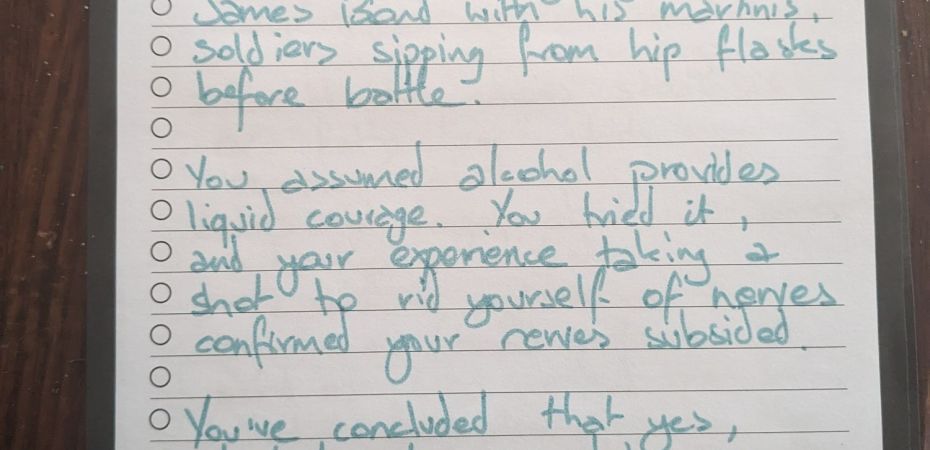 James Bond with his martinis,
soldiers sipping from hip flasks
before battle.
You assumed alcohol provides
liquid courage. You tried it,
and your experience taking a
shot to rid yourself of nerves
confirmed your nerves subsided.
You've concluded that yes,